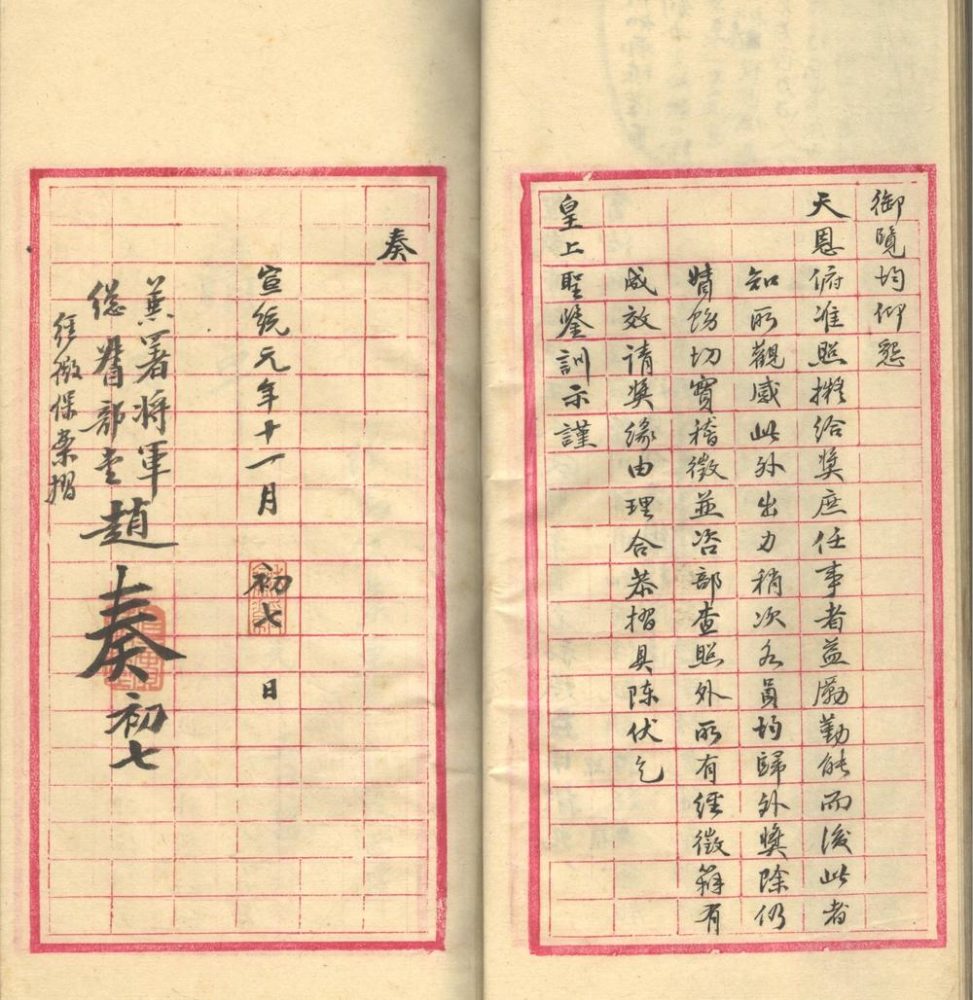 御覽均仰懇
天恩俯准照擬給獎庶任事者益勵勤能而後此者
知所觀感此外出力稍次各員均歸外獎除仍
飭切實稽徵並咨部查照外所有經徵籌有
成效請獎緣由理合恭摺具陳伏乞
皇上聖鑒訓示謹
奏
宣統元年十一月初七日
兼署將軍
總督部堂趙奏初七
經徵保案摺